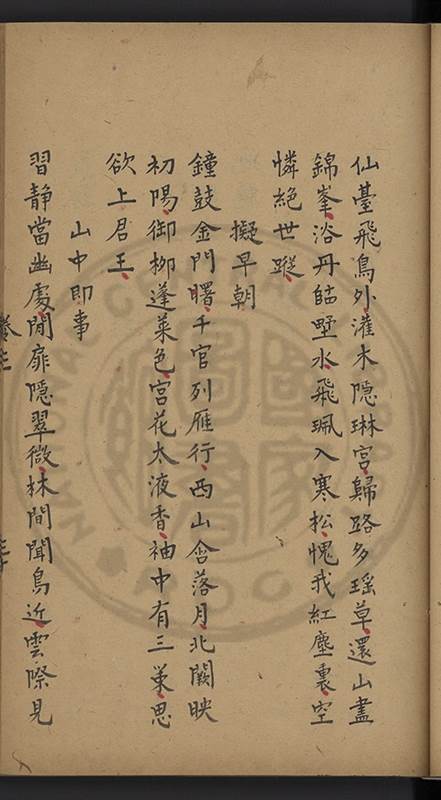 仙臺飛鳥外灌木隱琳宮歸路多瑤草還山盡
錦峯浴丹臨墅水飛珮入寒松愧我紅塵裏空
憐絕世蹤
擬早朝
鐘鼓金門曙千官列雁行西山含落月北闕映
初陽御柳蓬萊色宮花太液香袖中有三策思
欲上君王
山中即事
習靜當幽處閒扉隱翠微林間聞鳥近雲際見